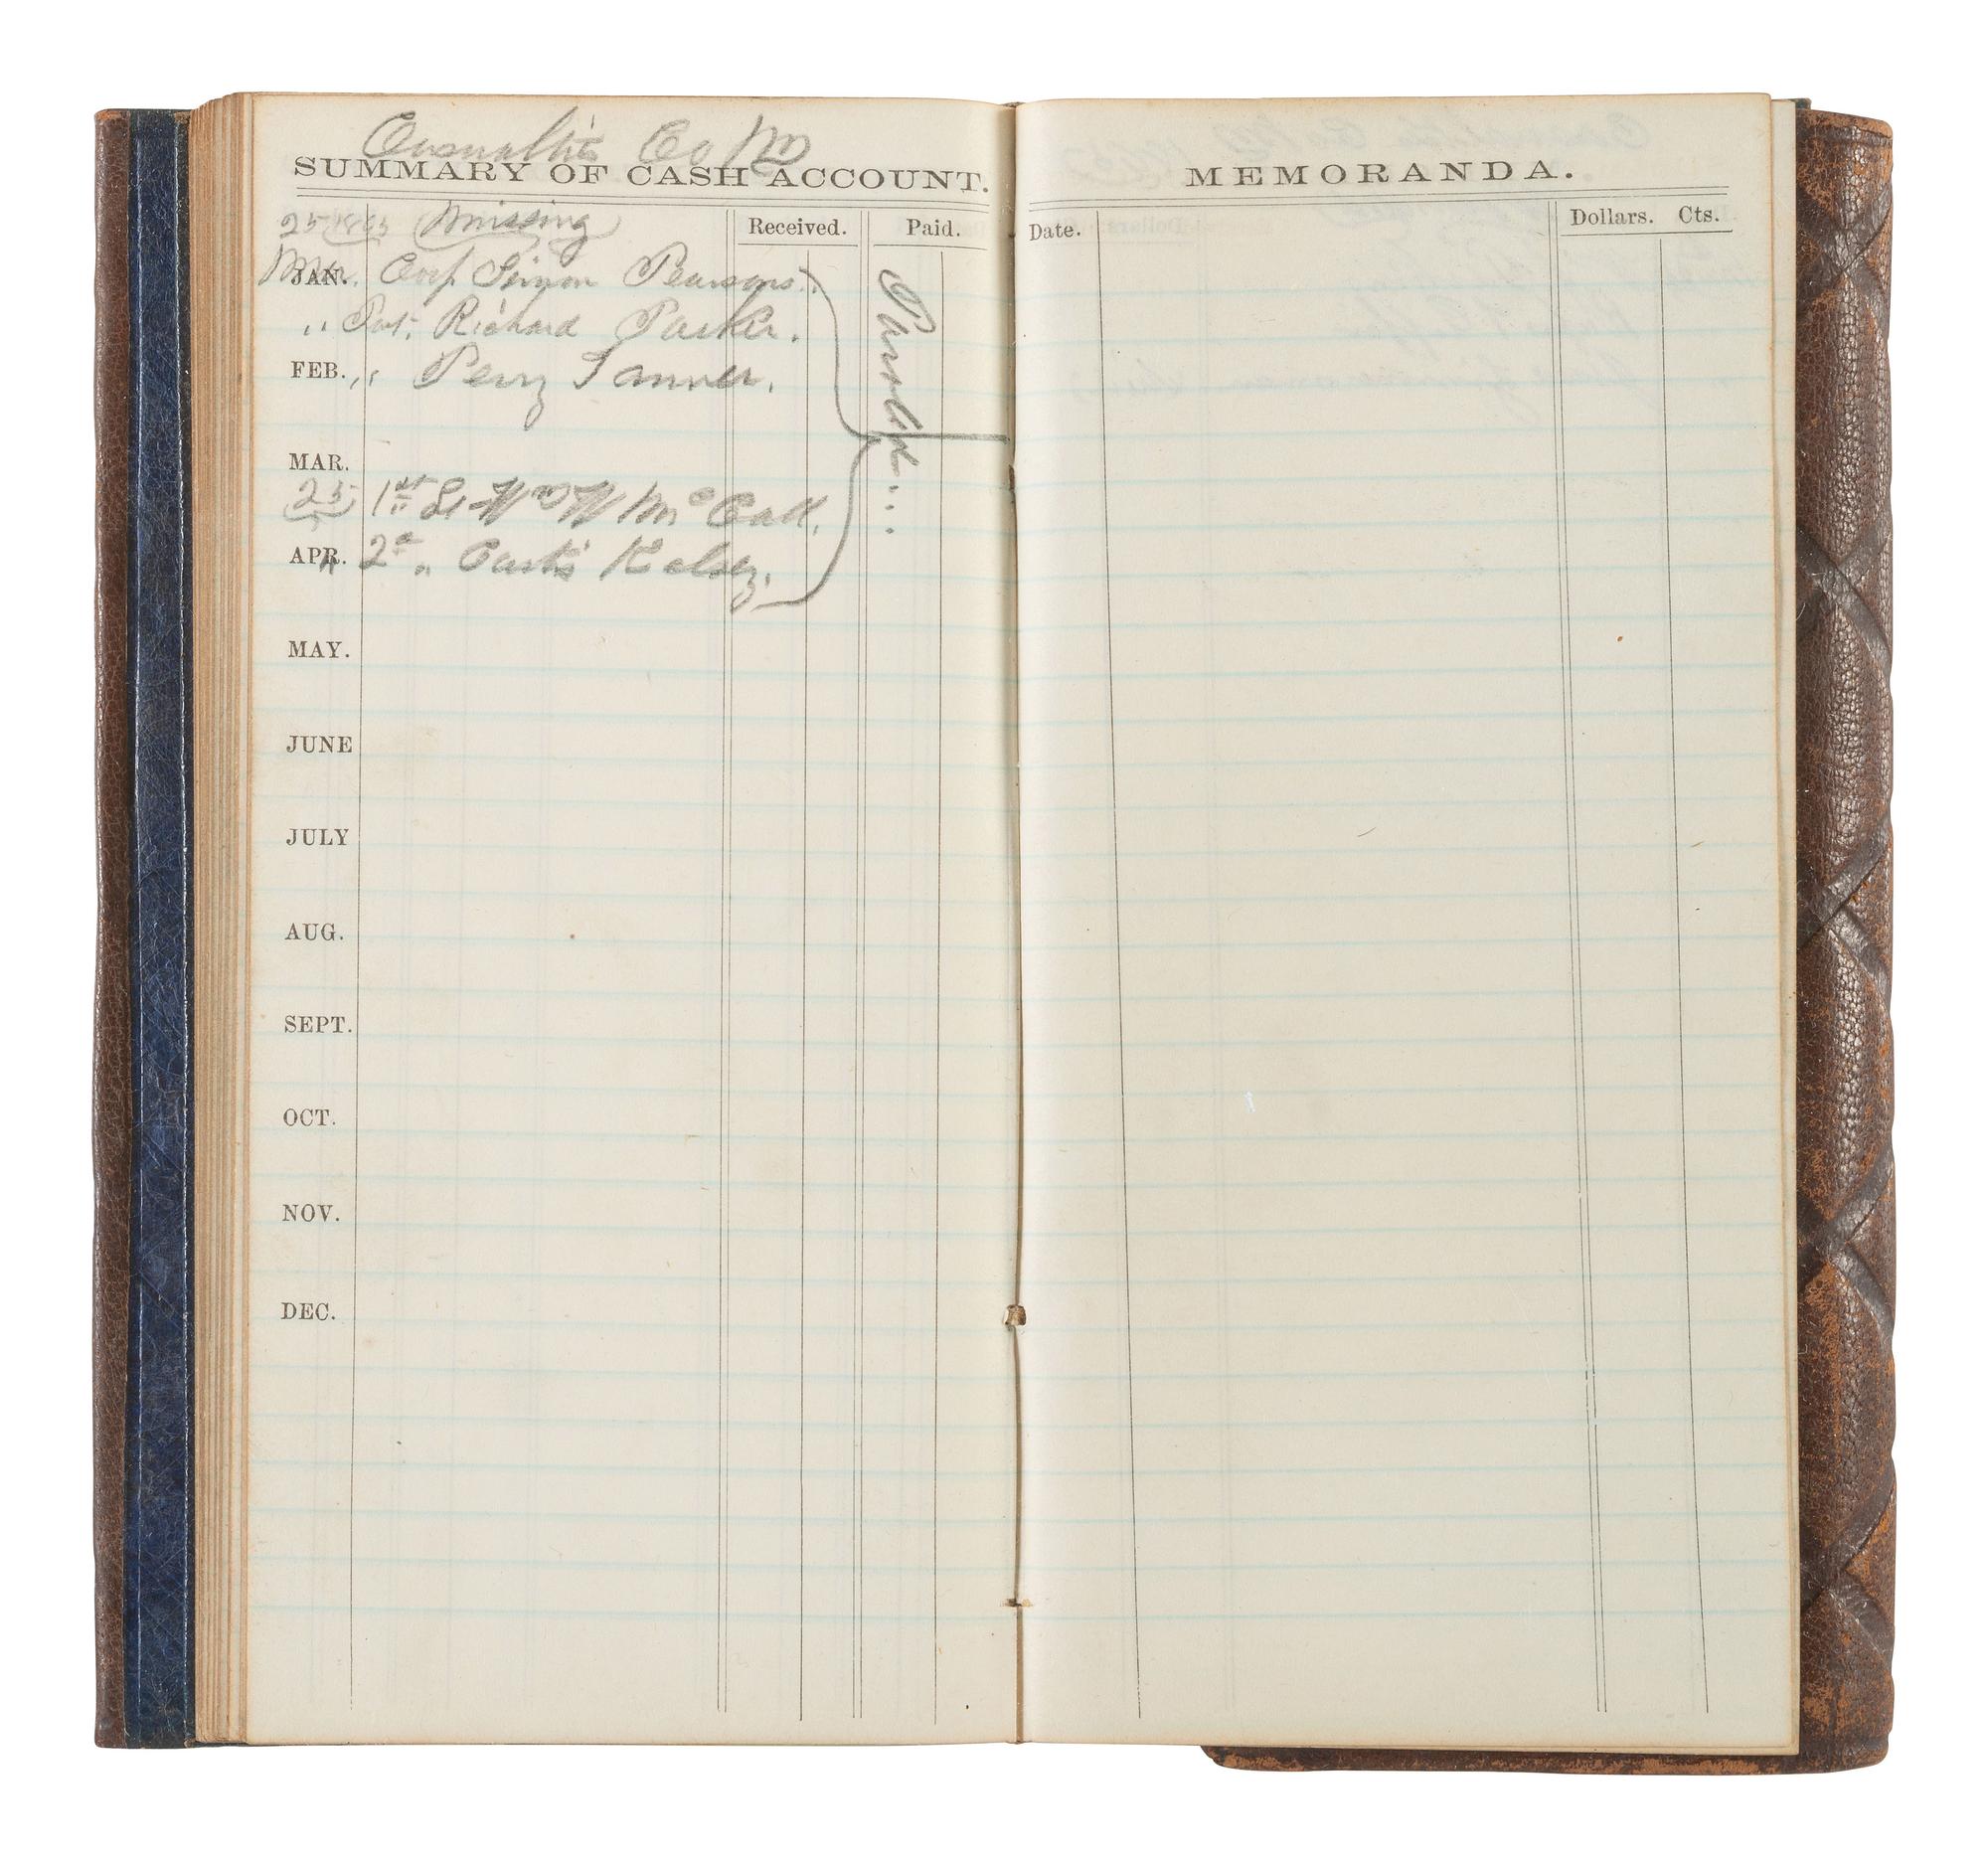 Casualties Co M
SUMMARY OF CASH ACCOUNT.
25 1865 Missing
Received. Paid.
Mar. JAN. Corp Simon Pearsons.
" Pvt. Richard Parker.
FEB. " " Perry Tanner.
Paroled
MAR.
25 1st Lt Wm W McCall.
APR. " 2d " Curtis Kelsey.
MAY.
JUNE
JULY
AUG.
SEPT.
OCT.
NOV.
DEC.
MEMORANDA.
Date. Dollars. Cts.